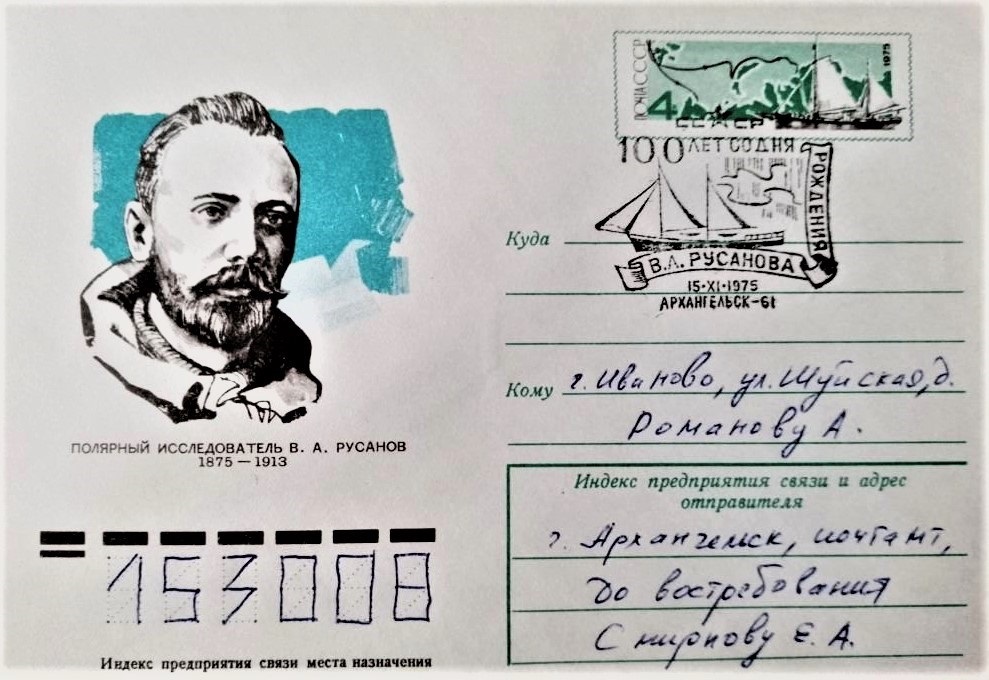 ПОЧТА СССР
4
1975
СССР
100 ЛЕТ СО ДНЯ
РОЖДЕНИЯ
В.А. РУСАНОВА
15·XI·1975
АРХАНГЕЛЬСК-61
Куда
Кому г. Иваново, ул. Шуйская, д.
Романову А.
ПОЛЯРНЫЙ ИССЛЕДОВАТЕЛЬ В. А. РУСАНОВ
1875 — 1913
Индекс предприятия связи и адрес
отправителя
г. Архангельск, почтамт,
до востребования
Смирнову Е. А.
153008
Индекс предприятия связи места назначения